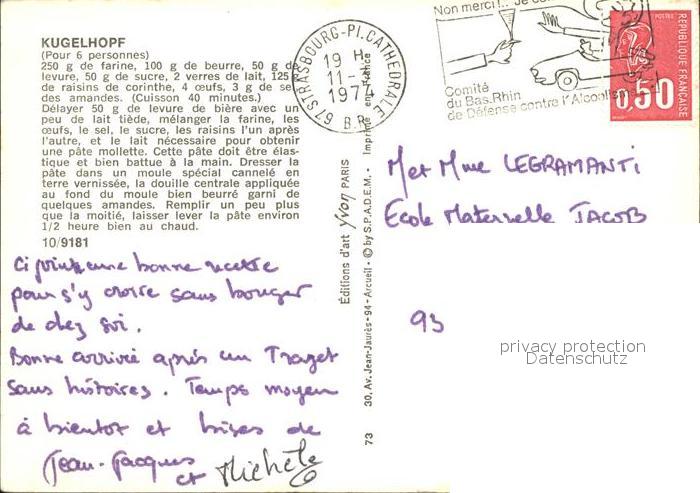 KUGELHOPF
(Pour 6 personnes)
250 g de farine, 100 g de beurre, 50 g de
levure, 50 g de sucre, 2 verres de lait, 125
de raisins de corinthe, 4 œufs, 3 g de sel
des amandes. (Cuisson 40 minutes.)
Délayer 50 g de levure de bière avec un
peu de lait tiède, mélanger la farine, les
œufs, le sel, le sucre, les raisins l'un après
l'autre, et le lait nécessaire pour obtenir
une pâte mollette. Cette pâte doit être élas-
tique et bien battue à la main. Dresser la
pâte dans un moule spécial cannelé en
terre vernissée, la douille centrale appliquée
au fond du moule bien beurré garni de
quelques amandes. Remplir un peu plus
que la moitié, laisser lever la pâte environ
1/2 heure bien au chaud.
10/9181
Ci joint une bonne recette
pour s'y croire sans bouger
de chez soi.
Bonne arrivée après un Trajet
sans histoires. Temps moyen
à bientot et bises de
Jean-Jacques
et Michèle
67 STRASBOURG-Pl. CATHEDRALE
19 H
11-
1974
B.R.
Non merci!.. Je
Comité
du Bas.Rhin
de Défense contre l'Alcoolisme
POSTES
REPUBLIQUE FRANÇAISE
0,50
Editions d'art Yvon PARIS
30, Av. Jean-Jaurès-94-Arcueil - © by S.P.A.D.E.M. - Imprimé en France
73
M et Mme LEGRAMANTI
Ecole Maternelle JACOB
93
privacy protection
Datenschutz